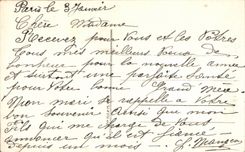 Paris le 3 Janvier
Chère Madame
Recevez pour vous et les vôtres
tous mes meilleurs voeux de
bonheur pour la nouvelle année
et surtout une parfaite santé
pour votre bonne Grand Mère
Mon mari se rappelle à votre
bon souvenir ainsi que mon
fils qui me charge de vous
annoncer qu'il est fiancé
depuis un mois